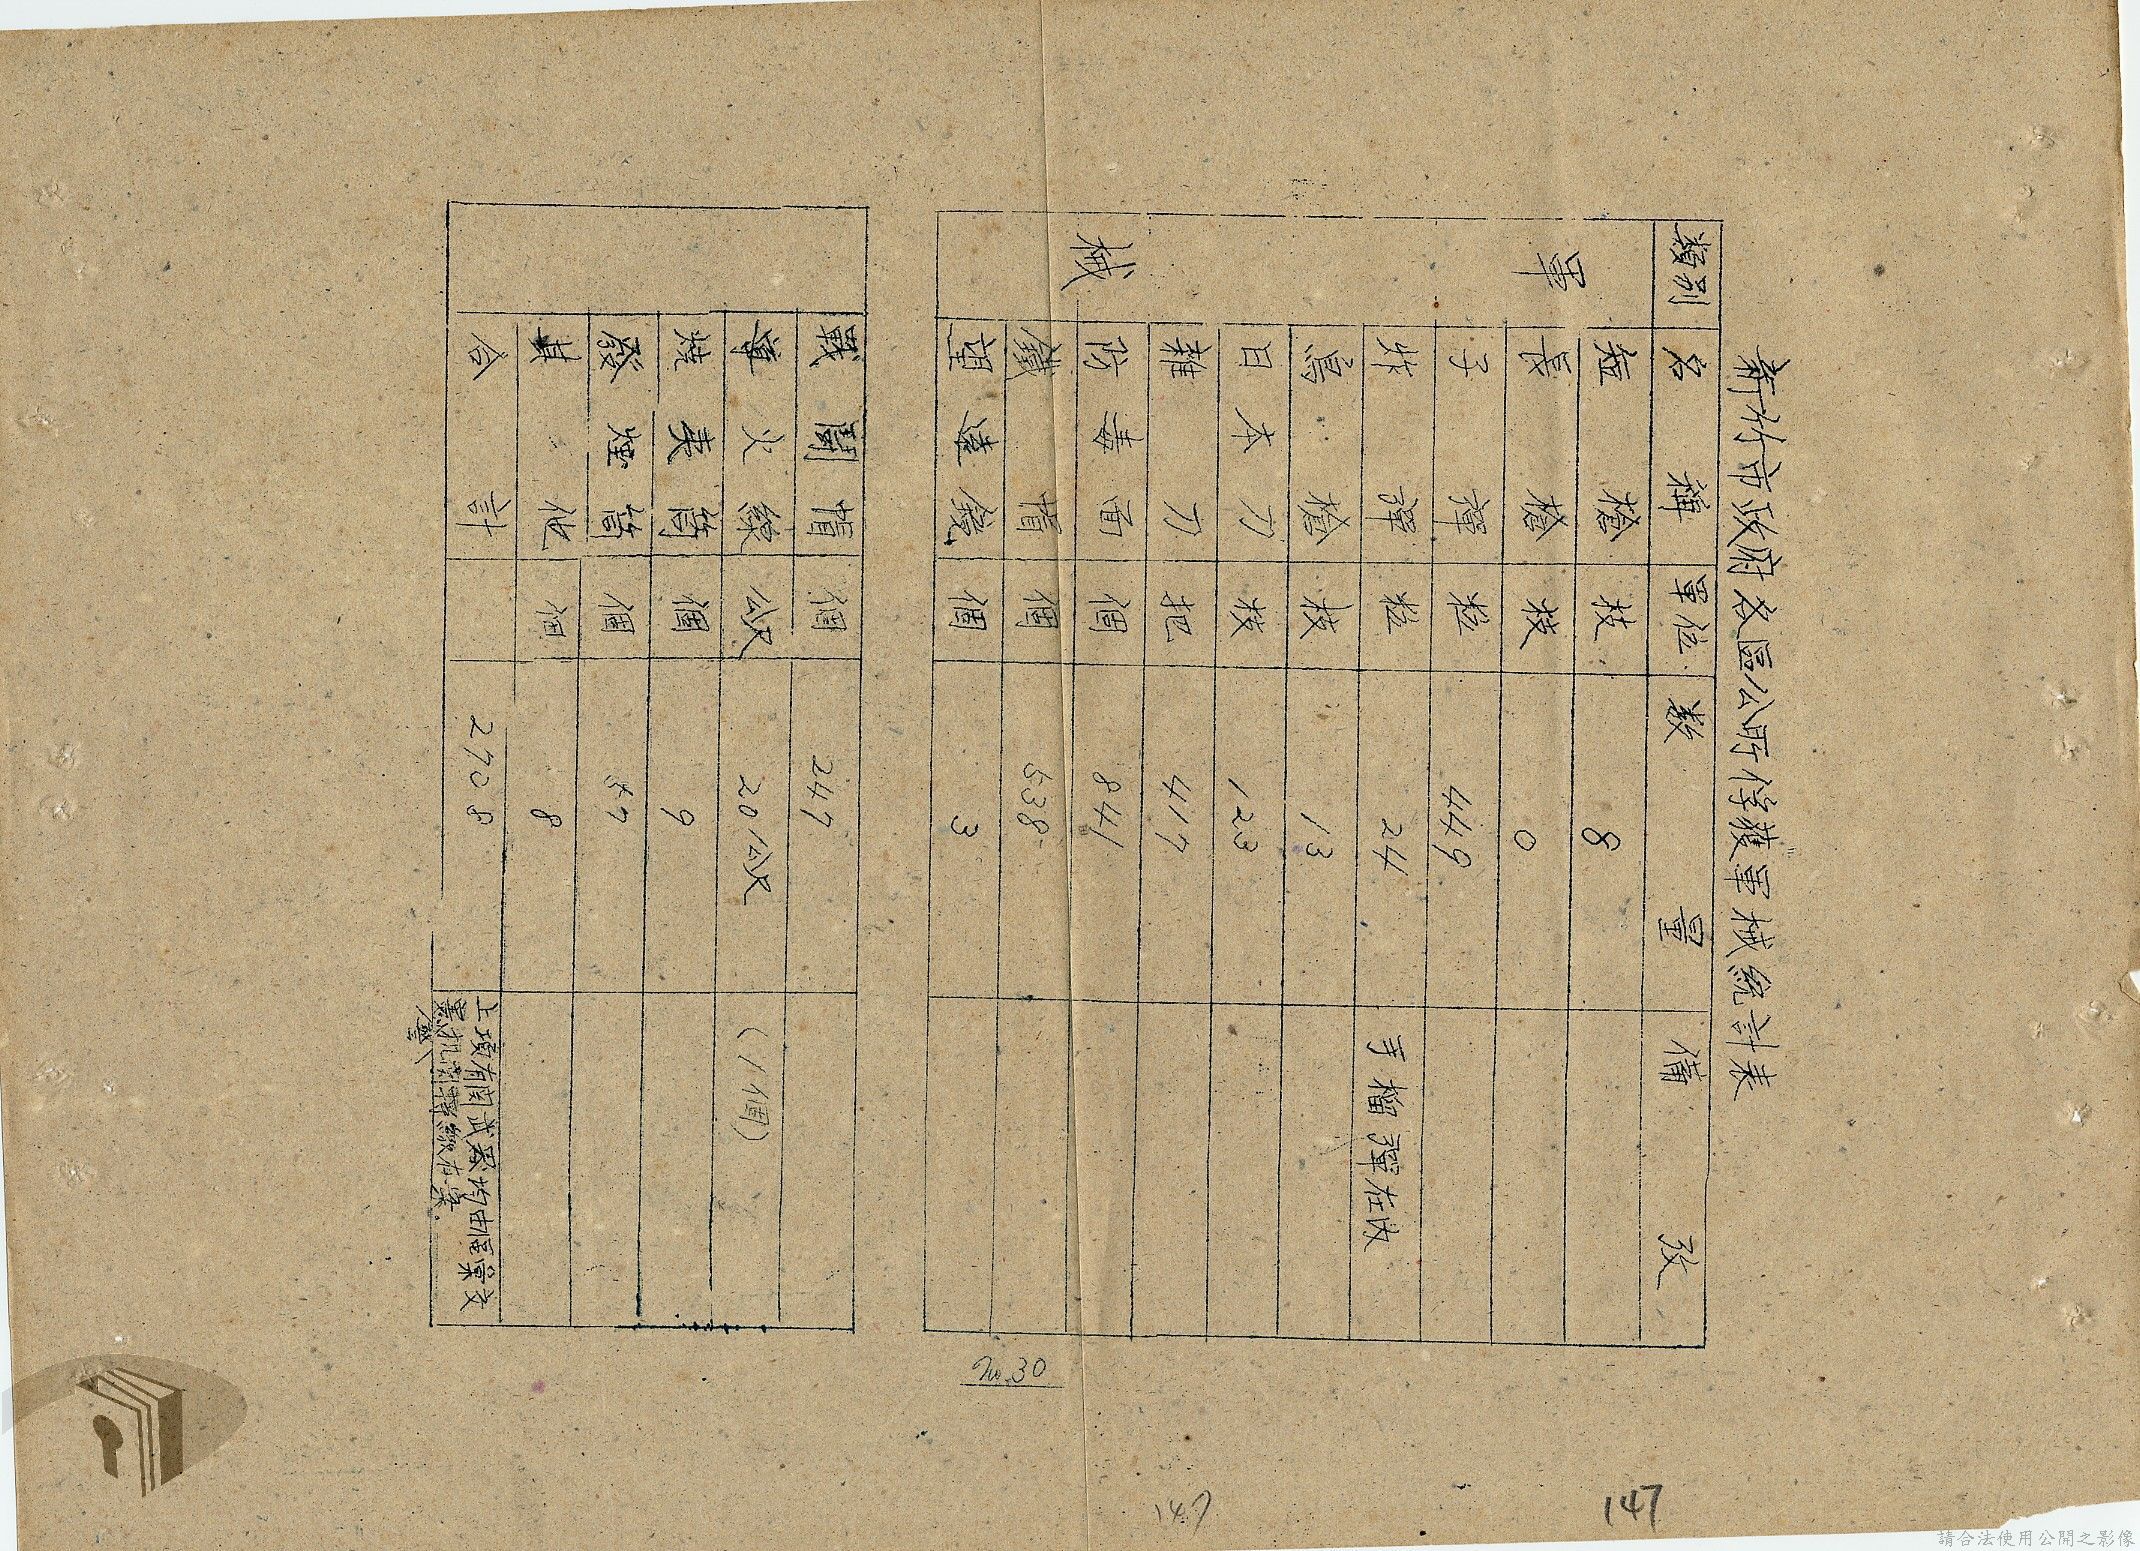 新竹市政府各區公所俘獲軍械統計表
類別 名稱 單位 數量 備攷
軍械
短槍 枝 8
長槍 枝 0
子彈 粒 449
炸彈 粒 24 手榴彈在內
鳥槍 枝 13
日本刀 枝 123
雜刀 把 417
防毒面 個 841
鐵帽 個 538
望遠鏡 個 3
戰鬪帽 個 247
導火線 公尺 20公尺 (1個)
夷筒 個 9
發煙筒 個
其他 個 8
合計 2708
上項有關武器均由區彙交
No.30
147
147
請合法使用公開之影像